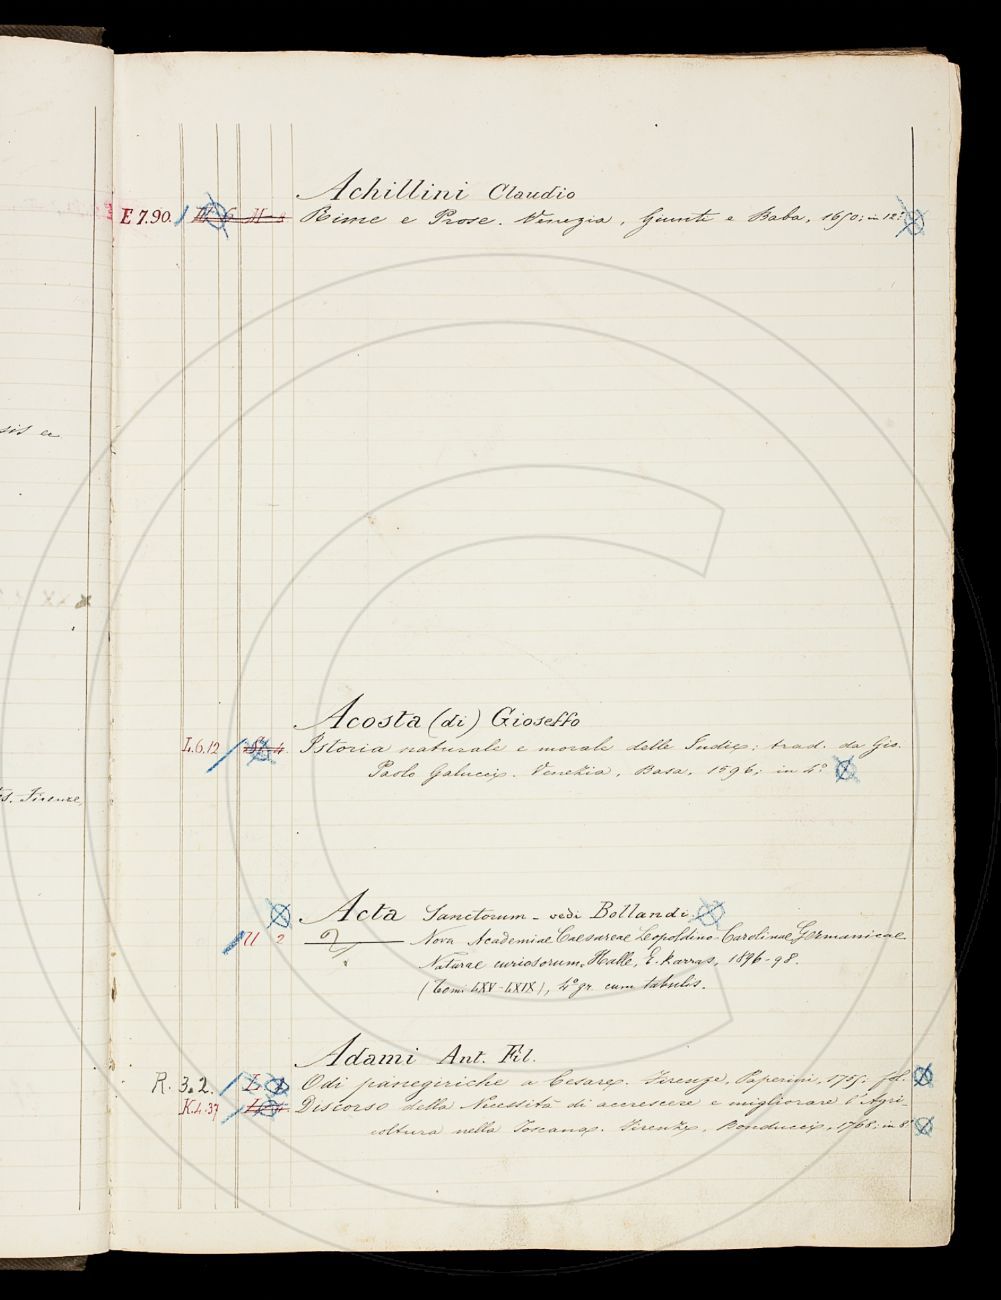 sis a
Achillini Claudio
E 7.90. Rime e Prose. Venezia, Giunti e Baba, 1650; in 12.°
Acosta (di) Gioseffo
L.6.12 Istoria naturale e morale delle Indie; trad. da Gio.
Paolo Galucci. Venezia, Basa, 1596; in 4.°
Firenze,
Acta Sanctorum - vedi Bollandi
U 2 Nova Academiae Caesareae Leopoldino-Carolinae Germanicae
Naturae curiosorum. Halle, E. Karras, 1896-98.
(Tom. LXV-LXIX), 4° gr. cum tabulis.
Adami Ant. Fil.
R. 3.2. Odi panegiriche a Cesare. Firenze, Paperini, fol.
K.4.37 Discorso della Necessità di accrescere e migliorare l'Agri-
coltura nella Toscana. Firenze, Bonducci, 1768; in 8°